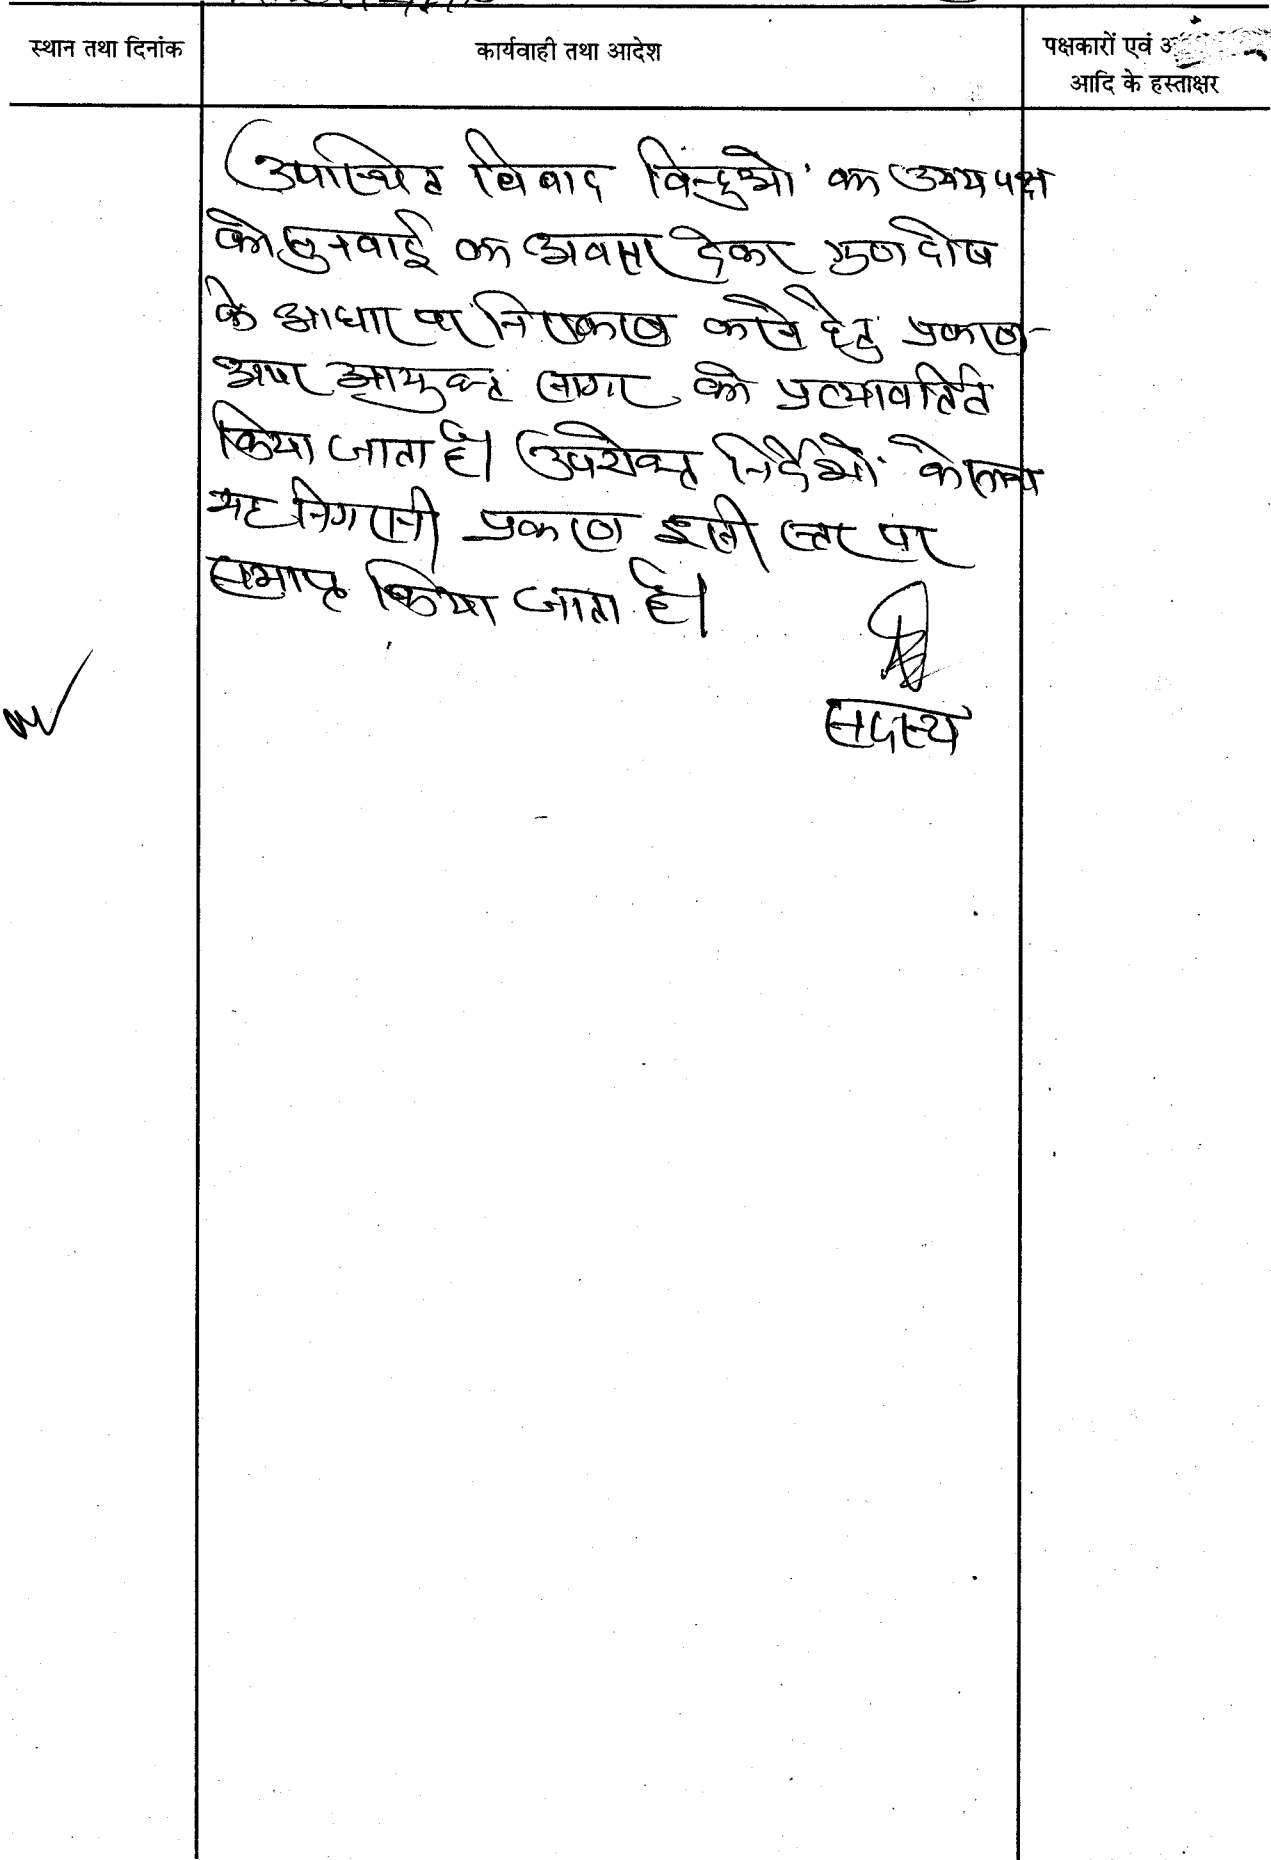 स्थान तथा दिनांक
कार्यवाही तथा आदेश
पक्षकारों एवं
आदि के हस्ताक्षर
उपस्थित विवाद विन्दुओं का उभय पक्ष
को सुनवाई का अवसर देकर गुण दोष
के आधार पर निराकरण करने हेतु प्रकरण
अपर आयुक्त सागर को प्रत्यावर्तित
किया जाता है। उपरोक्त निर्देशों के साथ
यह निगरानी प्रकरण इसी स्तर पर
समाप्त किया जाता है।
सदस्य